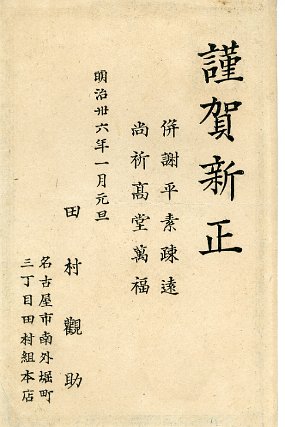 謹賀新正
併謝平素疎遠
尚祈高堂萬福
明治卅六年一月元旦
田村觀助
名古屋市南外堀町
三丁目田村組本店